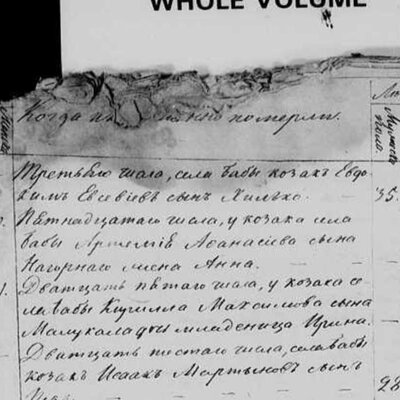 WHOLE VOLUME
Когда именно померли.
Третьяго числа, села Бабы козакъ Евдо-
кимъ Евсевіевъ сынъ Хилько. 35.
Пѣтнадцатаго числа, у козака села
Бабы Артемія Аѳанасіева сына
Нагорнаго жена Анна.
Дватцать пѣтаго числа, у козака се-
ла Бабы Кирилла Максимова сына
младеница Ирина.
Дватцать шестаго числа, села Бабы
козакъ Исаакъ Мартыновъ сынъ
28